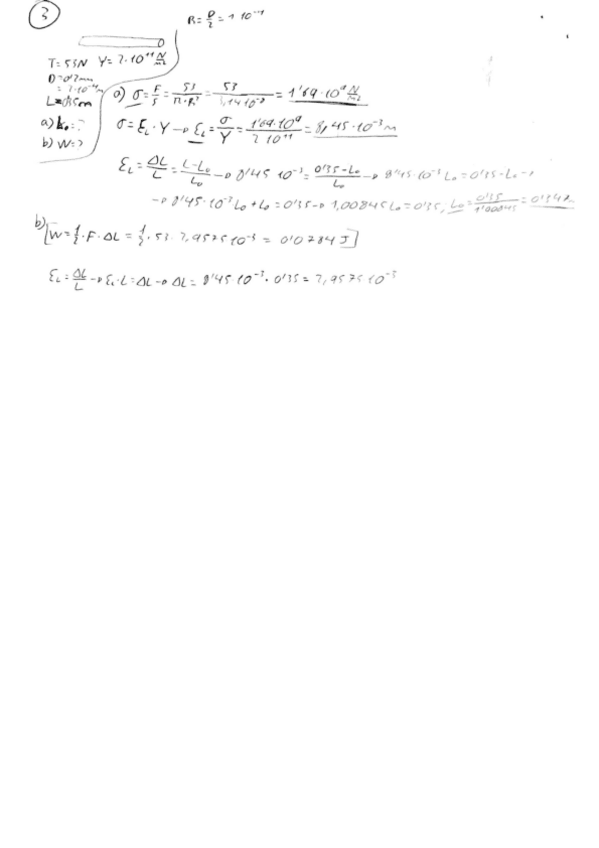 3
R = D/2 = 1 10⁻⁴
T = 53N Y = 2·10¹¹ N/m²
D = 0'2mm
= 2·10⁻⁴m
L = 0'35m
a) L₀ = ?
b) W = ?
a) σ = F/S = 53/π·R² = 53/3,14 10⁻⁸ = 1'69·10⁹ N/m²
σ = Ɛ_L · Y → Ɛ_L = σ/Y = 1'69·10⁹/2 10¹¹ = 8,45·10⁻³ m
Ɛ_L = ΔL/L = L-L₀/L₀ → 8'45 10⁻³ = 0'35-L₀/L₀ → 8'45·10⁻³ L₀ = 0'35-L₀ →
→ 8'45·10⁻³ L₀ + L₀ = 0'35 → 1,00845 L₀ = 0'35, L₀ = 0'35/1'00845 = 0'347m
b)
[W = 1/2 · F · ΔL = 1/2 · 53 · 2,9575 10⁻³ = 0'0784 J]
Ɛ_L = ΔL/L → Ɛ_L · L = ΔL → ΔL = 8'45·10⁻³ · 0'35 = 2,9575·10⁻³